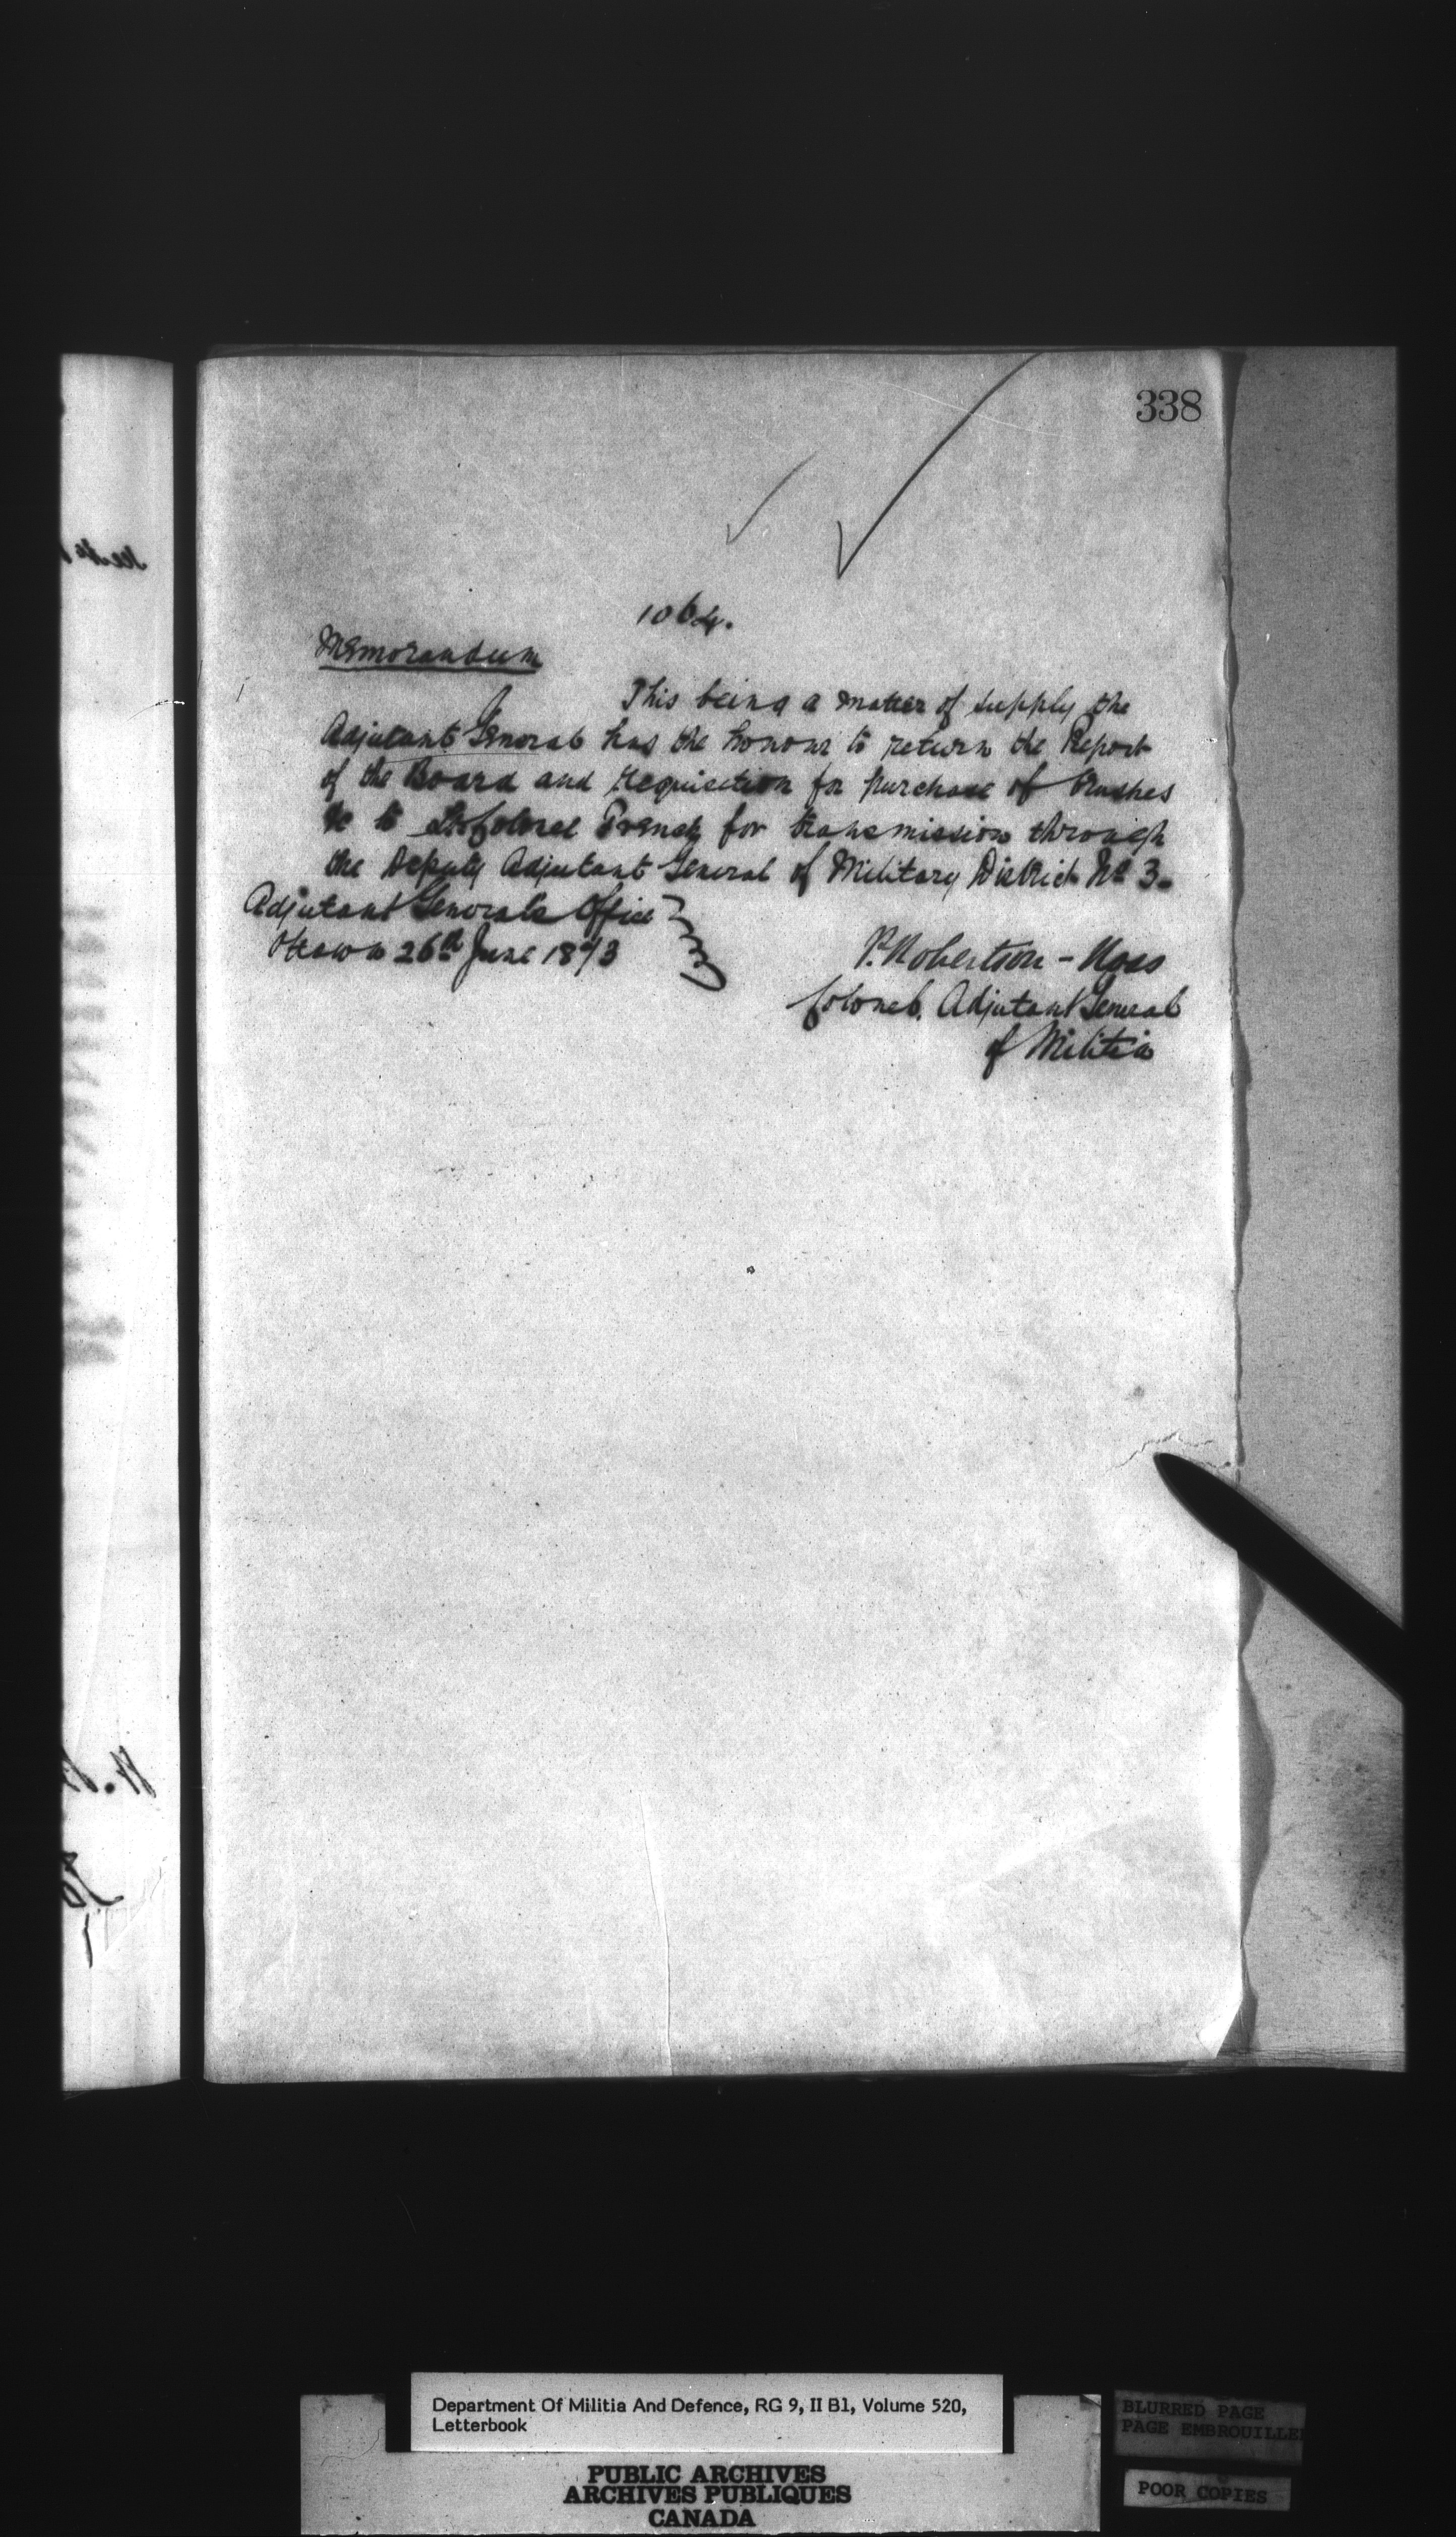 338
1064.
Memorandum
This being a matter of supply the
Adjutant General has the honour to return the Report
of the Board and Requisition for purchase of Brushes
&c to Lt Colonel French for transmission through
the Deputy Adjutant General of Military District No 3.
Adjutant Generals Office
Ottawa 26th June 1873
P. Robertson-Ross
Colonel, Adjutant General
of Militia
Department Of Militia And Defence, RG 9, II B1, Volume 520,
Letterbook
PUBLIC ARCHIVES
ARCHIVES PUBLIQUES
CANADA
BLURRED PAGE
PAGE EMBROUILLEE
POOR COPIES